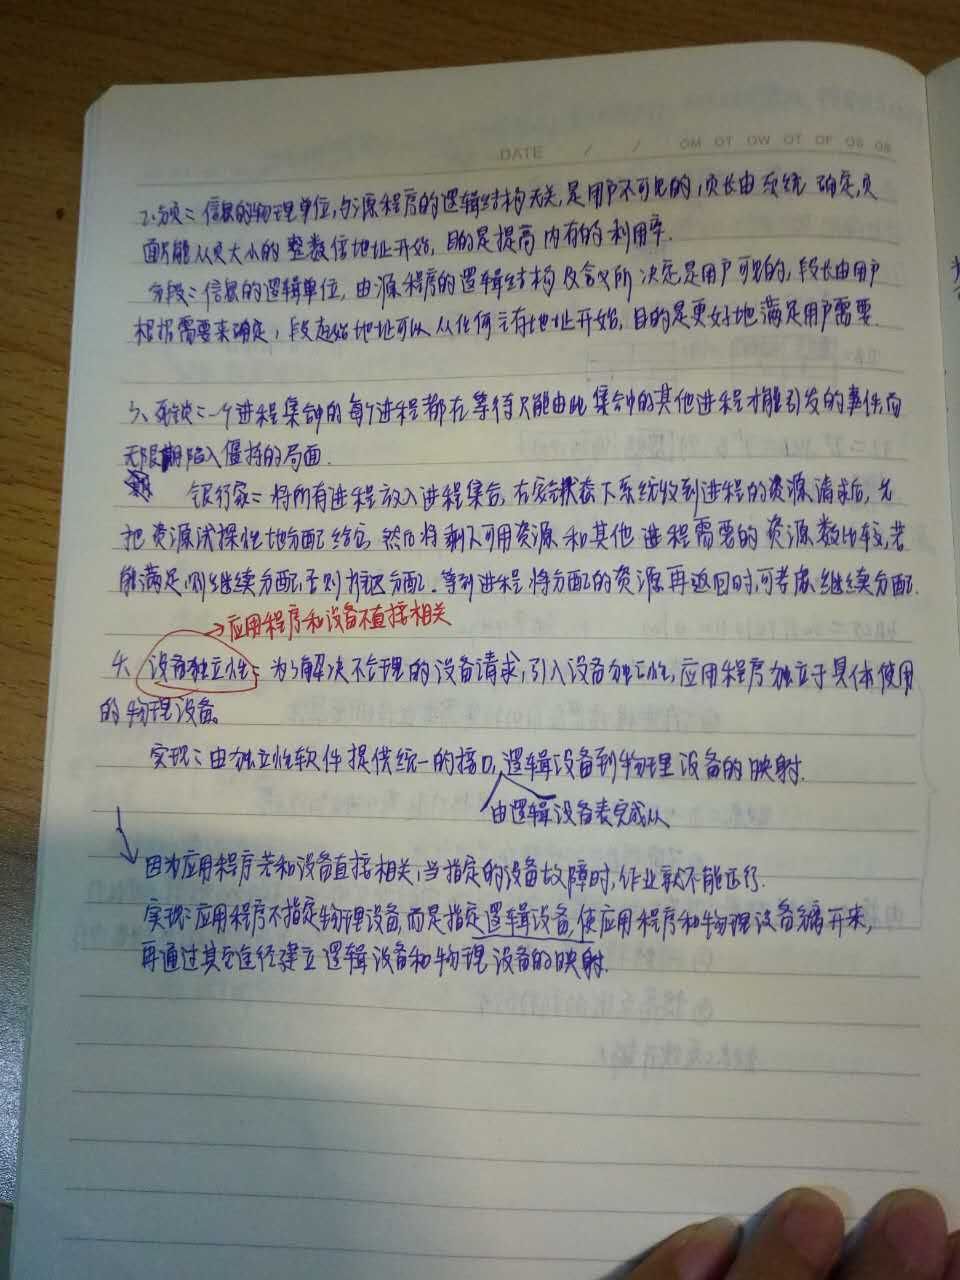 DATE / / OM OT OW OT OF OS OS
2. 分页：信息的物理单位，与源程序的逻辑结构无关，是用户不可见的，页长由系统确定，页
面只能从页大小的整数倍地址开始，目的是提高内存的利用率.
分段：信息的逻辑单位，由源程序的逻辑结构及含义所决定是用户可见的，段长由用户
根据需要来确定，段起始地址可以从任何主存地址开始，目的是更好地满足用户需要.
3、死锁：一个进程集合中的每个进程都在等待只能由此集合中的其他进程才能引发的事件而
无限期陷入僵持的局面.
银行家：将所有进程放入进程集合，在安全状态下系统收到进程的资源请求后，先
把资源试探性地分配给它，然后将剩下可用资源和其他进程需要的资源数比较，若
能满足，则继续分配，否则拒绝分配. 等到进程将分配的资源再返回时，可考虑继续分配.
→应用程序和设备不直接相关
4. 设备独立性：为了解决不合理的设备请求，引入设备独立性，应用程序独立于具体使用
的物理设备。
实现：由独立性软件提供统一的接口，逻辑设备到物理设备的映射.
由逻辑设备表完成从
因为应用程序若和设备直接相关，当指定的设备故障时，作业就不能运行.
实现：应用程序不指定物理设备，而是指定逻辑设备，使应用程序和物理设备开来，
再通过其它途径建立逻辑设备和物理设备的映射.